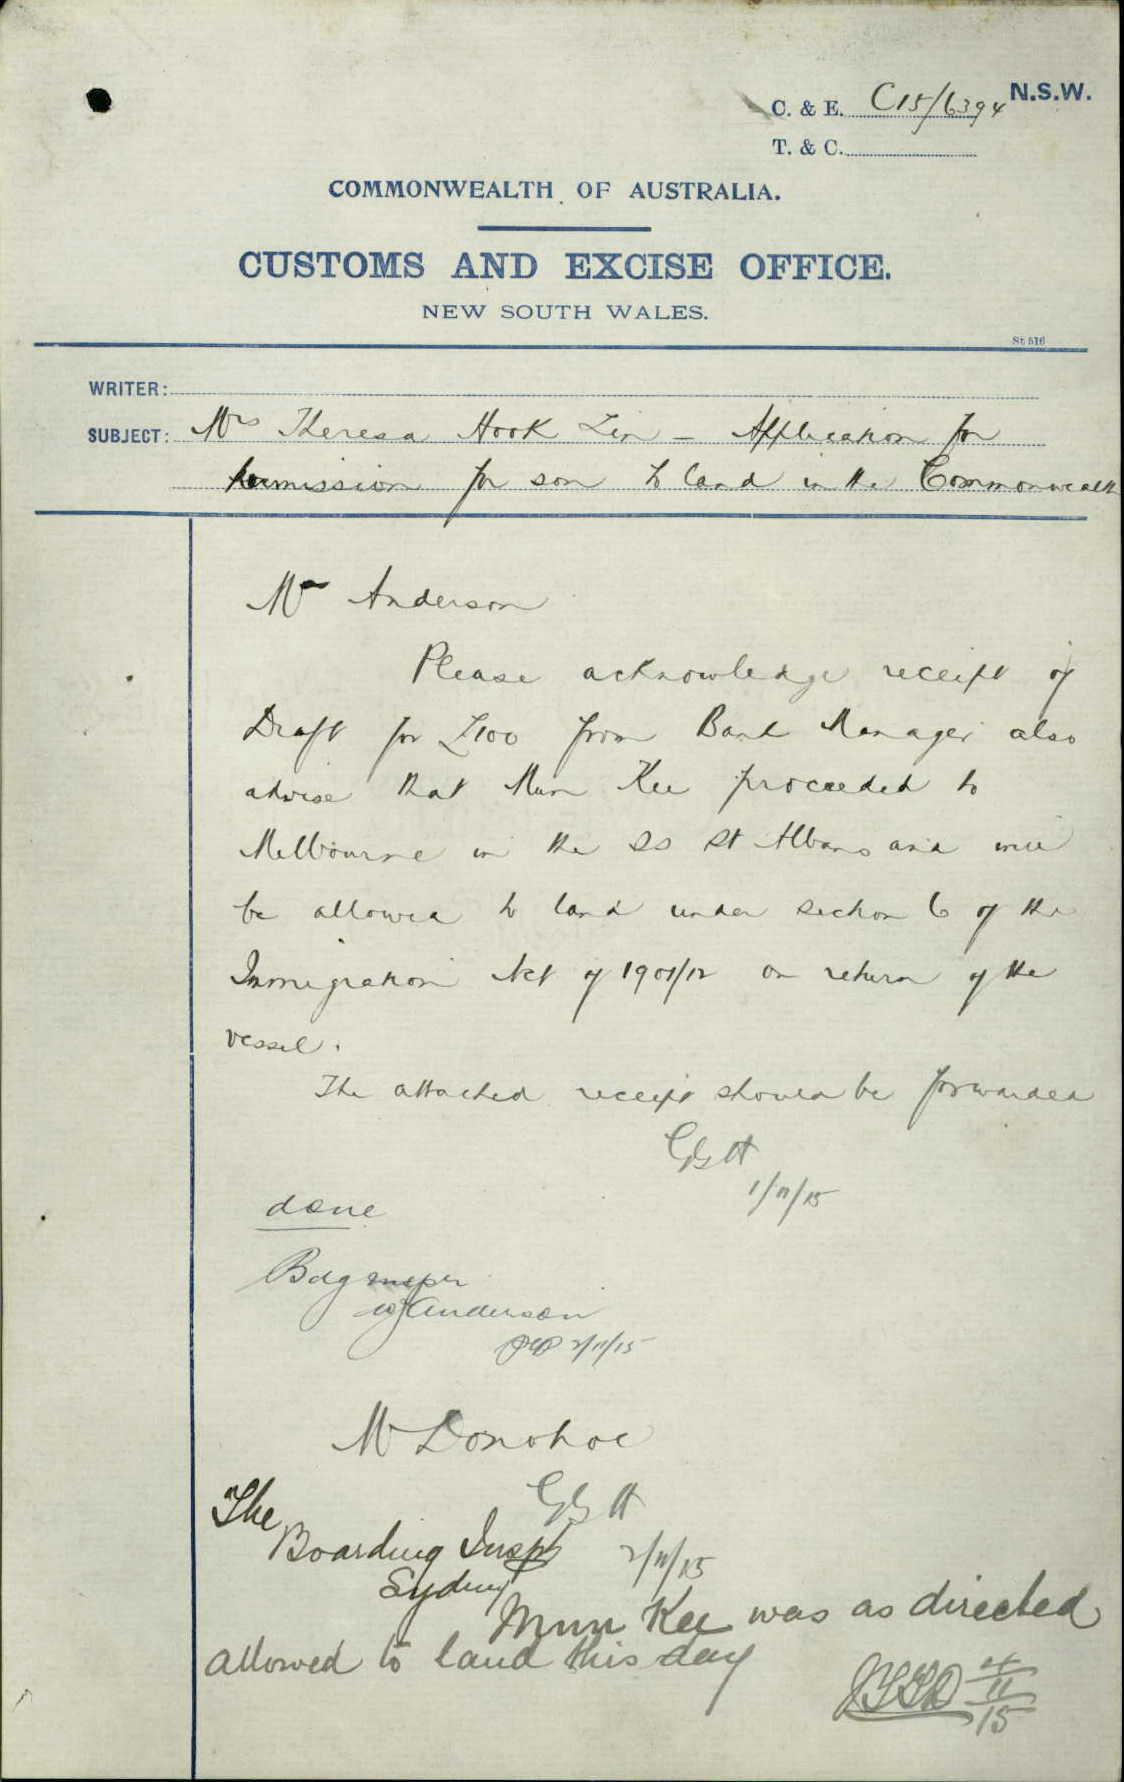 N.S.W.
C. & E. C15/6394
T. & C.
COMMONWEALTH OF AUSTRALIA.
CUSTOMS AND EXCISE OFFICE.
NEW SOUTH WALES.
St 516
WRITER:
SUBJECT: Mrs Theresa Hook Lin - Application for
permission for son to land in the Commonwealth
Mr Anderson
Please acknowledge receipt of
Draft for £100 from Bank Manager also
advise that Mun Kee proceeded to
Melbourne in the SS St Albans and will
be allowed to land under section 6 of the
Immigration Act of 1901/12 on return of the
vessel.
The attached receipt should be forwarded
1/11/15
done
Bdg Insper
WJ Anderson
2/11/15
Mr Donohoe
2/11/15
The
Boarding Inspr
Sydney
Mun Kee was as directed
allowed to land this day
4/11/15